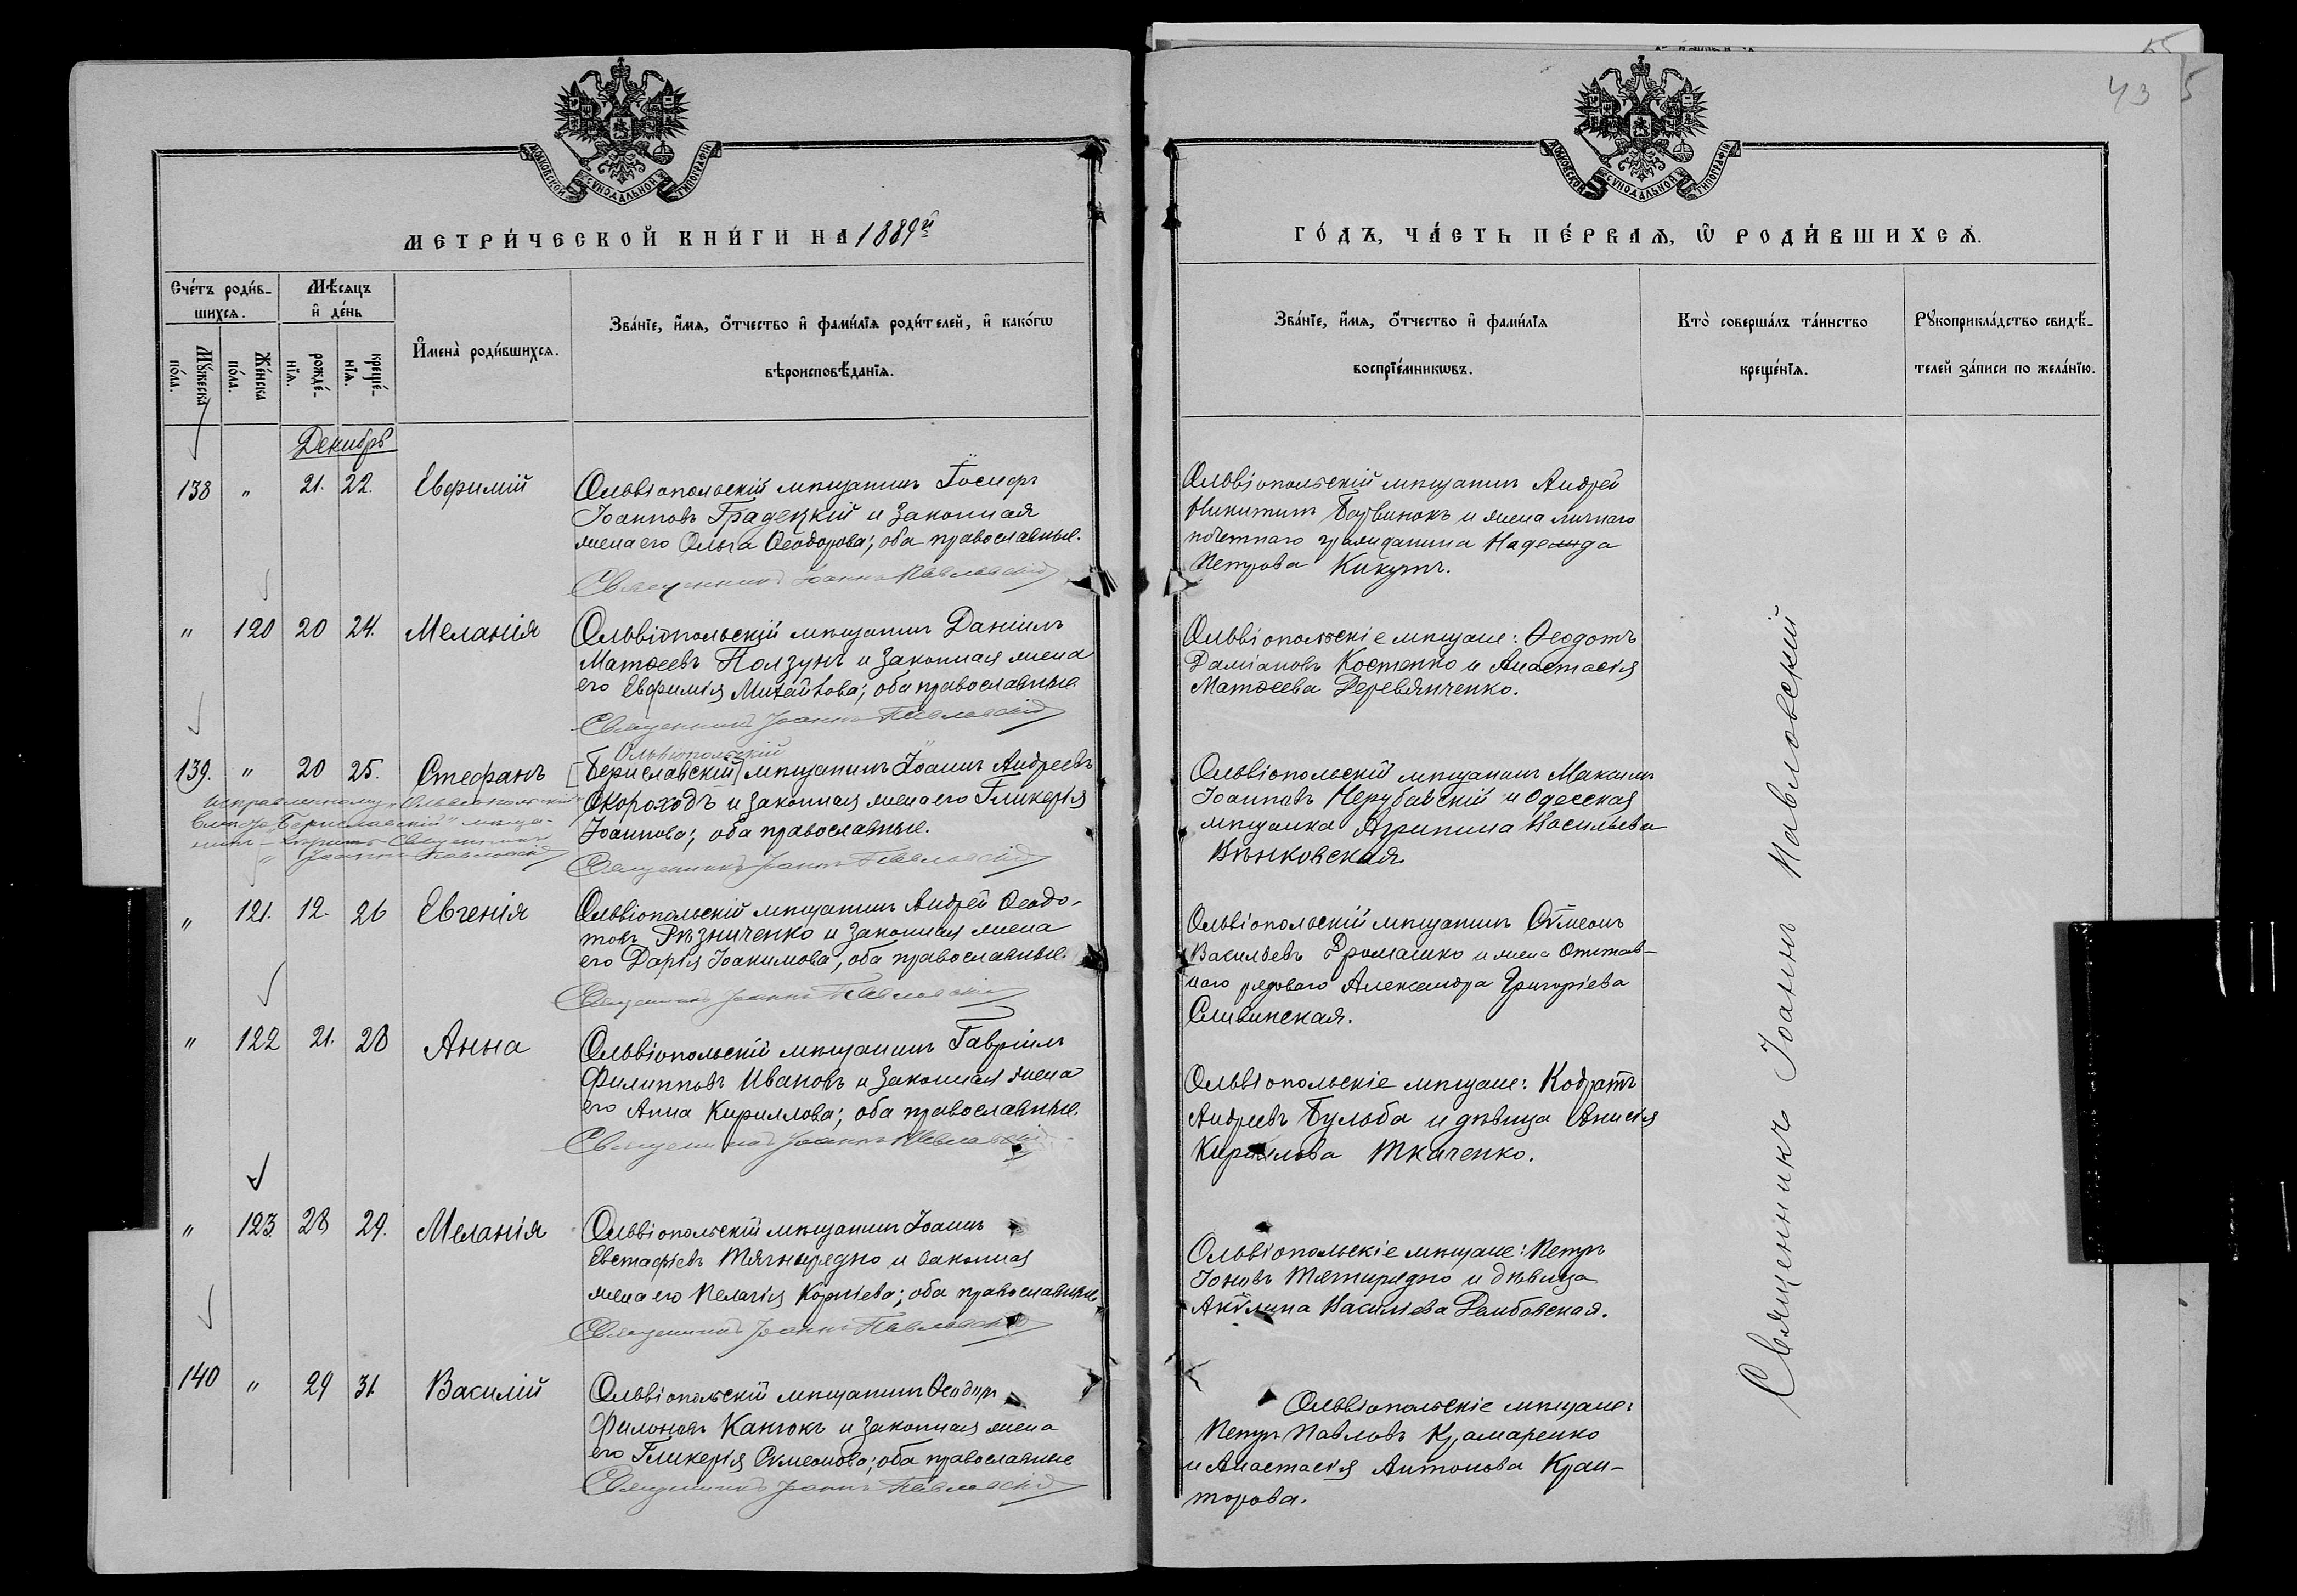 43
МОСКОВСКОЙ СѴНОДАЛЬНОЙ ТИПОГРАФІИ
МОСКОВСКОЙ СѴНОДАЛЬНОЙ ТИПОГРАФІИ
МЕТРИ́ЧЕСКОЙ КНИ́ГИ НА 1889й
ГО́ДЪ, ЧА́СТЬ ПЕ́РВАѦ, Ѿ РОДИ́ВШИХСѦ.
Сче́тъ роди́в-
шихсѧ.
Мѣ́сѧцъ
и҆ де́нь
Мꙋ́жеска
по́ла.
Же́нска
по́ла.
рожде́-
нїѧ.
креще́-
нїѧ.
И҆мена̀ роди́вшихсѧ.
Зва́нїе, и҆́мѧ, ѻ҆́тчество и҆ фами́лїѧ роди́телей, и҆ како́гѡ
вѣроисповѣ́данїѧ.
Зва́нїе, и҆́мѧ, ѻ҆́тчество и҆ фами́лїѧ
воспрїе́мникѡвъ.
Кто̀ соверша́лъ та́инство
креще́нїѧ.
Рꙋкоприкла́дство свидѣ́-
телей за́писи по жела́нїю.
Декабрь
138 " 21. 22. Евфимій
Ольвіопольскій мѣщанинъ Іосифъ
Іоанновъ Градецкій и законная
жена его Ольга Ѳеодорова; оба православные.
Священникъ Іоаннъ Павловскій
Ольвіопольскій мѣщанинъ Андрей
Никитинъ Борвинокъ и жена личнаго
почетнаго гражданина Надежда
Петрова Кикутъ.
" 120 20 24. Меланія
Ольвіопольскій мѣщанинъ Даніилъ
Матѳеевъ Ползунъ и законная жена
его Евфимія Михайлова; оба православные
Священникъ Іоаннъ Павловскій
Ольвіопольскіе мѣщане: Ѳеодотъ
Даміановъ Костенко и Анастасія
Матѳеева Деревянченко.
139. " 20 25. Стефанъ
Ольвіопольскій
[Бериславскій] мѣщанинъ Іоаннъ Андреевъ
Скороходъ и законная жена его Гликерія
Іоаннова; оба православные.
Священникъ Іоаннъ Павловскій
Исправленному "Ольвіопольскій"
вмѣсто "Бериславскій" мѣща-
нинъ – вѣрить Священникъ
Іоаннъ Павловскій
Ольвіопольскій мѣщанинъ Максимъ
Іоанновъ Черубавскій и Одесская
мѣщанка Агрипина Васильева
Вѣнковская.
" 121. 12. 26 Евгенія
Ольвіопольскій мѣщанинъ Андрей Ѳеодо-
товъ Рѣзниченко и законная жена
его Дарія Іоакимова; оба православные.
Священникъ Іоаннъ Павловскій
Ольвіопольскій мѣщанинъ Сѵмеонъ
Васильевъ Ермашко и жена Отстав-
наго рядоваго Александра Григоріева
Сливинская.
" 122 21. 28 Анна
Ольвіопольскій мѣщанинъ Гавріилъ
Филипповъ Ивановъ и законная жена
его Анна Кириллова; оба православные.
Священникъ Іоаннъ Павловскій
Ольвіопольскіе мѣщане: Кодратъ
Андреевъ Бульба и дѣвица Анисія
Кириллова Ткаченко.
" 123. 28 29. Меланія
Ольвіопольскій мѣщанинъ Іоаннъ
Евстафіевъ Тягнирядно и законная
жена его Пелагія Корніева; оба православные
Священникъ Іоаннъ Павловскій
Ольвіопольскіе мѣщане: Петръ
Іоновъ Тягнирядно и дѣвица
Акѵлина Василіева Дембовская.
140 " 29 31. Василій
Ольвіопольскій мѣщанинъ Ѳеодоръ
Филоновъ Канюкъ и законная жена
его Гликерія Сѵмеонова; оба православные
Священникъ Іоаннъ Павловскій
Ольвіопольскіе мѣщане:
Петръ Павловъ Крамаренко
и Анастасія Антонова Кран-
торова.
Священникъ Іоаннъ Павловскій